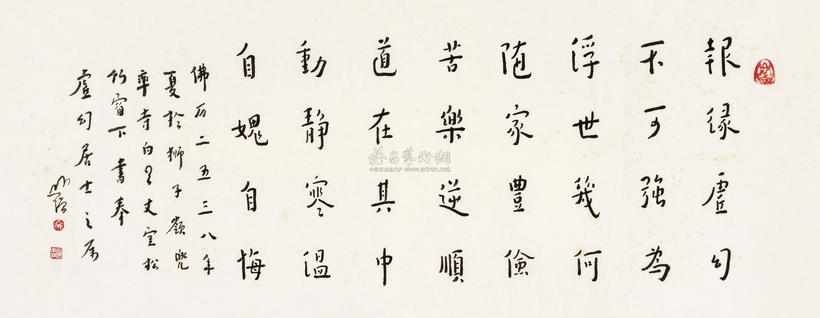 報緣虛幻
不可強為
浮世幾何
随家豐儉
苦樂逆順
道在其中
動靜寒温
自愧自悔
佛历二五三八年
夏於獅子嶺兜
率寺白雲丈室松
竹窗下書奉
虛幻居士之属
雅昌藝術網
www.artron.net